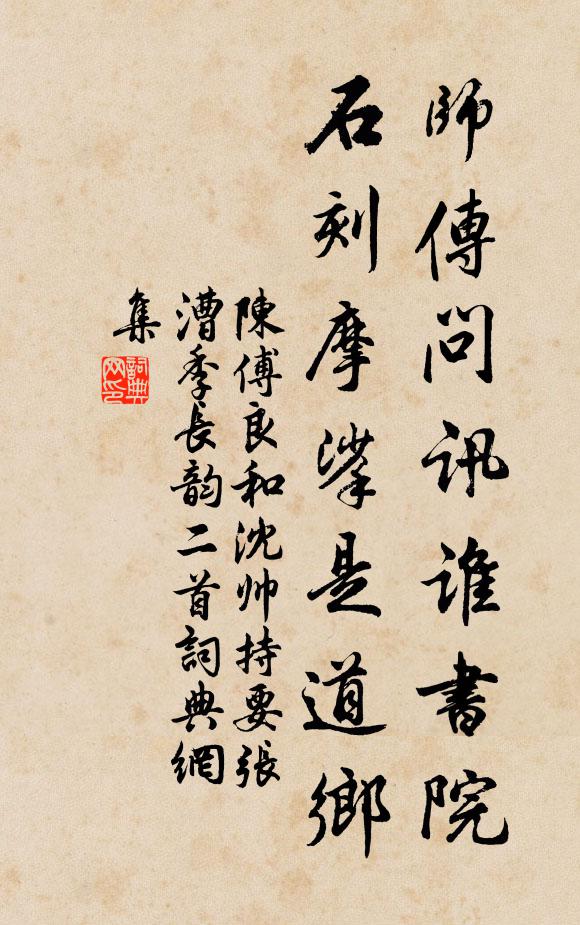 師傅問訊誰書院
石刻摩挲是道鄉
陳傅良和沈帅持要張
漕季長韵二首詞典網
集
詞典
网印